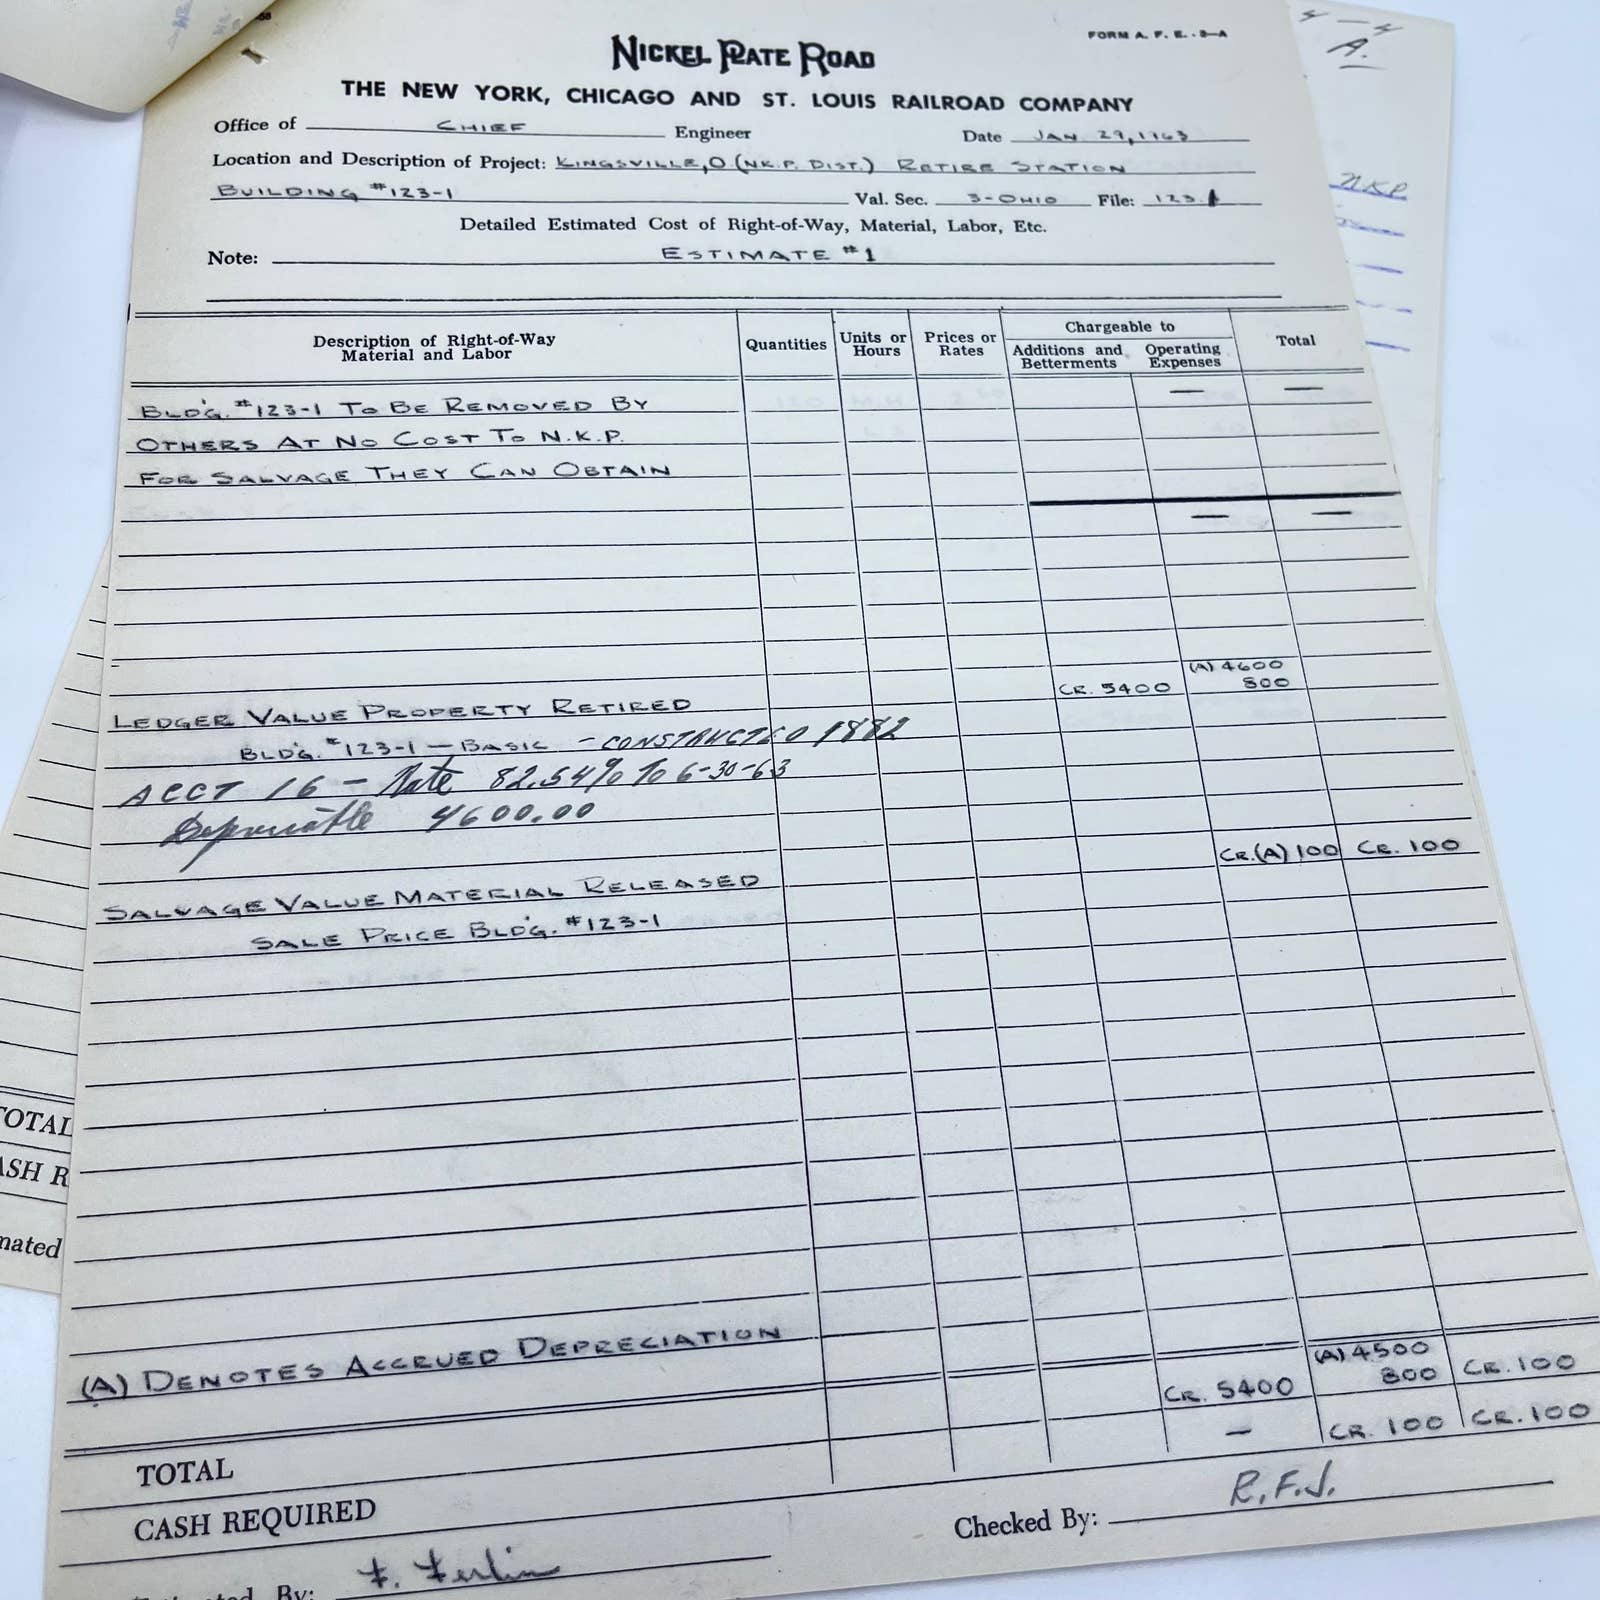 FORM A. F. E. - 3-A
NICKEL PLATE ROAD
THE NEW YORK, CHICAGO AND ST. LOUIS RAILROAD COMPANY
Office of CHIEF Engineer Date JAN. 29, 1963
Location and Description of Project: KINGSVILLE, O. (N.K.P. DIST.) RETIRE STATION
BUILDING #123-1 Val. Sec. 3-OHIO File: 123.1
Detailed Estimated Cost of Right-of-Way, Material, Labor, Etc.
Note: ESTIMATE #1
Description of Right-of-Way Material and Labor Quantities Units or Hours Prices or Rates Chargeable to Additions and Betterments Operating Expenses Total
BLD'G. #123-1 TO BE REMOVED BY — —
OTHERS AT NO COST TO N.K.P.
FOR SALVAGE THEY CAN OBTAIN
— —
(A) 4600
LEDGER VALUE PROPERTY RETIRED CR. 5400 800
BLD'G. #123-1 — BASIC - CONSTRUCTED 1882
ACCT 16 - Rate 82.54% To 6-30-63
Depreciable 4600.00
SALVAGE VALUE MATERIAL RELEASED CR. (A) 100 CR. 100
SALE PRICE BLD'G. #123-1
(A) DENOTES ACCRUED DEPRECIATION
(A) 4500
TOTAL CR. 5400 800 CR. 100
CASH REQUIRED — CR. 100 CR. 100
By: Checked By: R.F.J.
A.
NKP
TOTAL
ASH R
mated